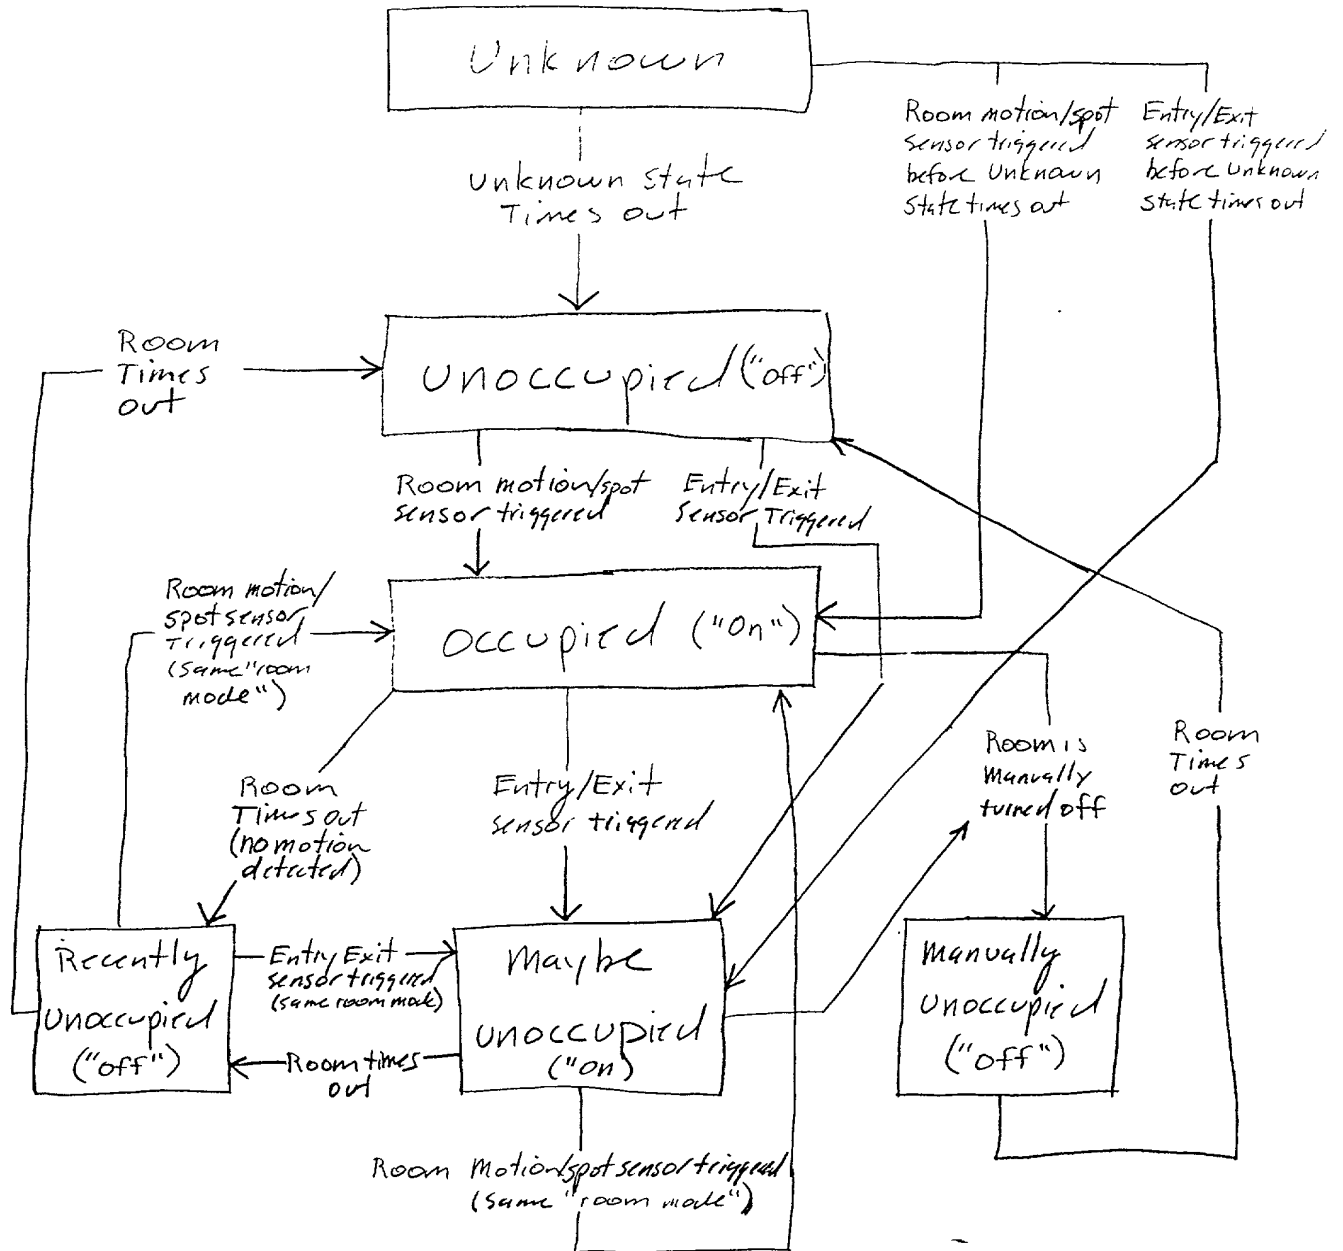 Unknown
Room motion/spot
sensor triggered
before Unknown
State times out
Entry/Exit
sensor triggered
before Unknown
State times out
Unknown state
Times out
Room
Times
out
Unoccupied ("Off")
Room motion/spot
sensor triggered
Entry/Exit
Sensor Triggered
Room motion/
spot sensor
Triggered
(Same "room
mode")
Occupied ("On")
Room
Times out
(no motion
detected)
Entry/Exit
sensor triggered
Room is
Manually
turned off
Room
Times
out
Recently
Unoccupied
("Off")
Entry/Exit
sensor triggered
(same room mode)
Room times
out
Maybe
Unoccupied
("On)
Manually
Unoccupied
("Off")
Room Motion/spot sensor triggered
(Same "room mode")